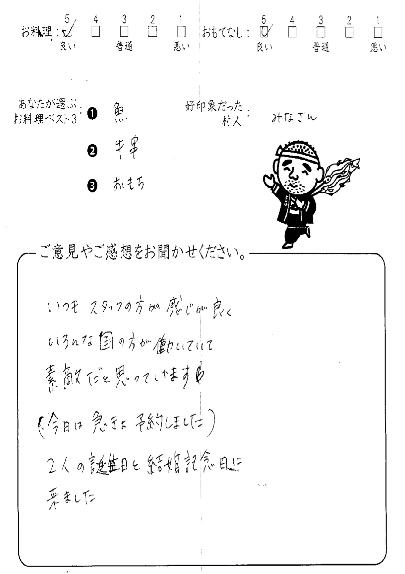 お料理: 5 4 3 2 1 おもてなし: 5 4 3 2 1
良い 普通 悪い 良い 普通 悪い
あなたが選ぶ お料理ベスト3: ❶ 魚
❷ 牛串
❸ おもち
好印象だった 村人: みなさん
ご意見やご感想をお聞かせください。
いつも スタッフの方が 感じが良く
いろんな国の方が働いていて
素敵だと思っています
(今日は急きょ予約しました)
2人の誕生日と結婚記念日に
来ました